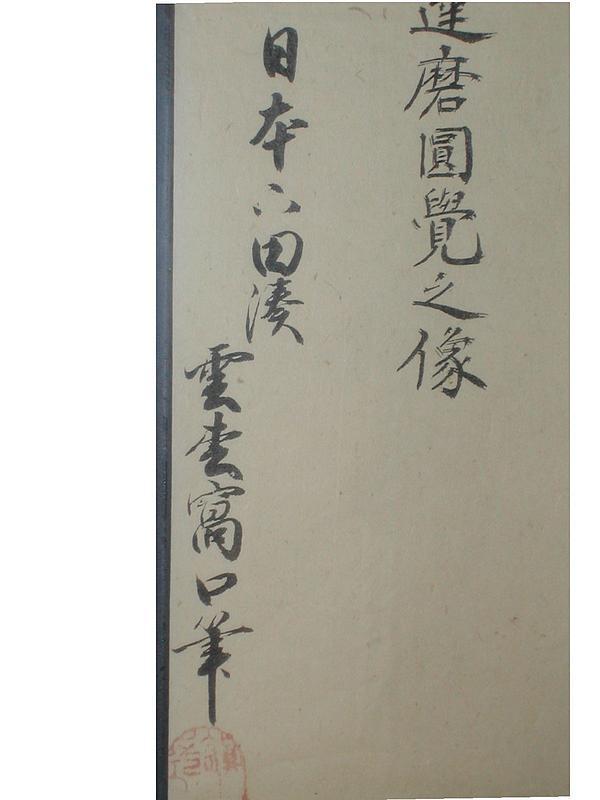 達磨圓覺之像
日本下田湊
雲枩窩口筆